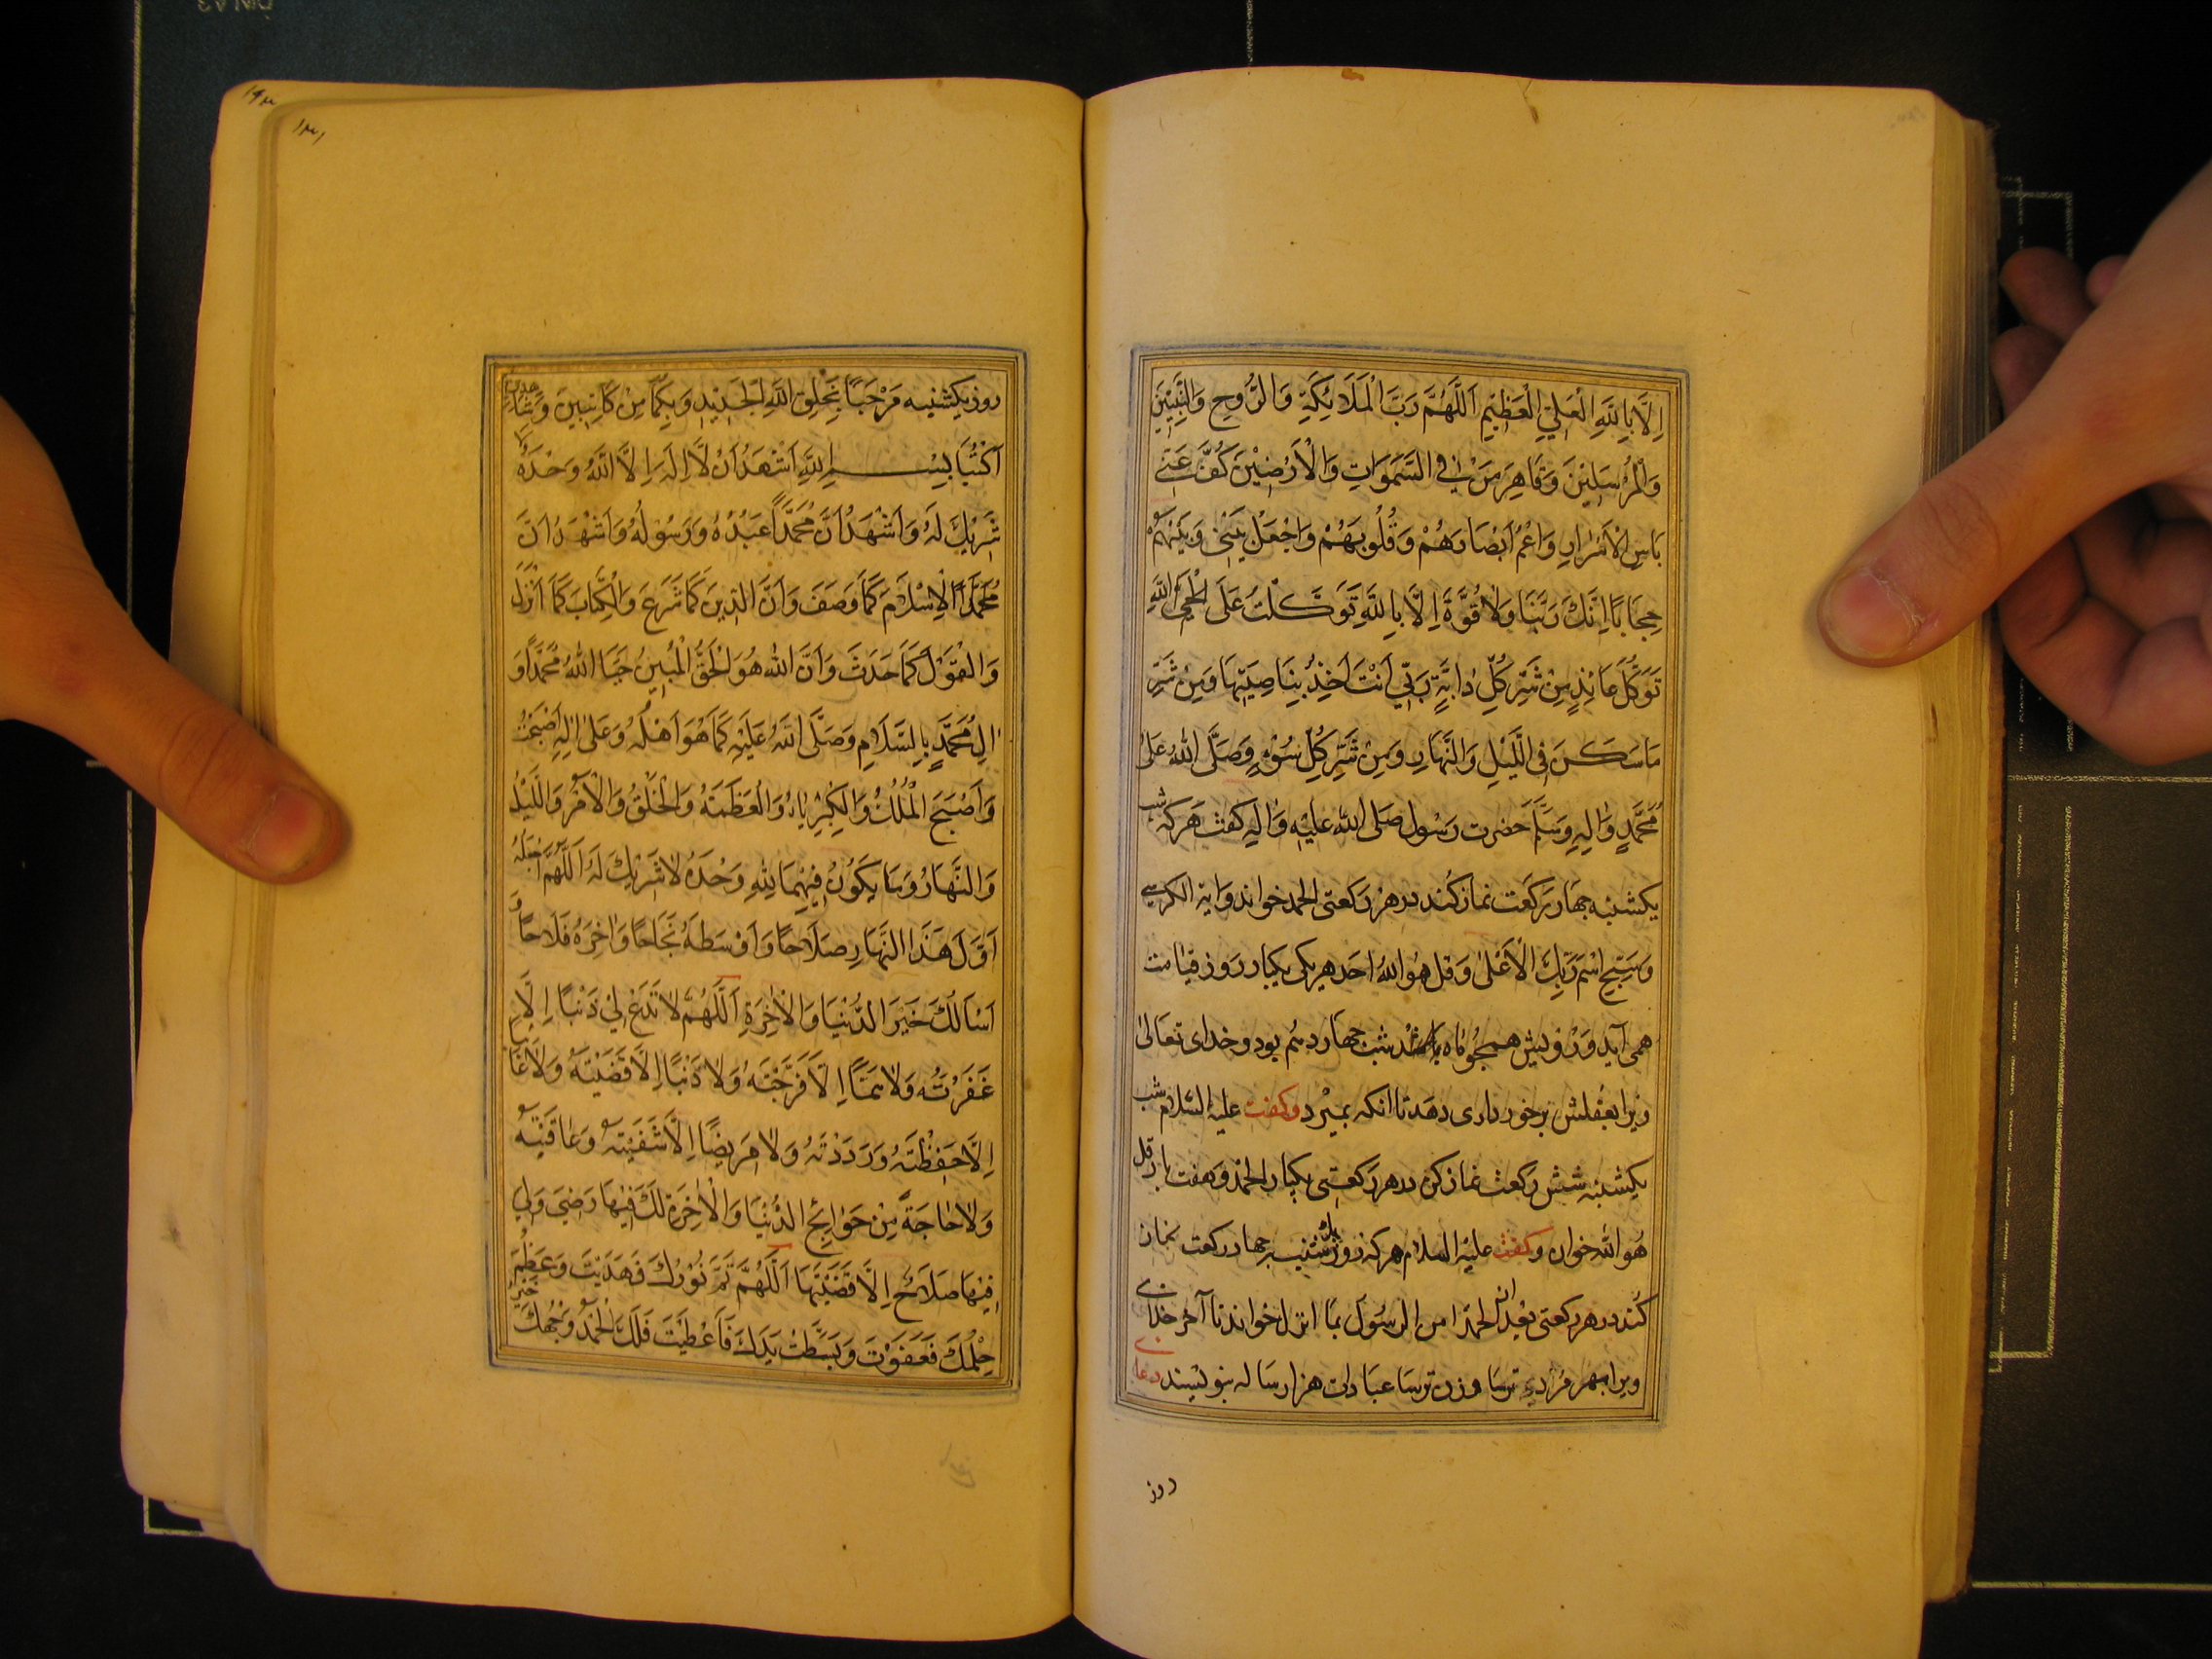 اِلَّا بِاللّٰهِ الْعَلِيِّ الْعَظِيْمِ اَللّٰهُمَّ رَبَّ الْمَلَائِكَةِ وَالرُّوحِ وَالنَّبِيّٖنَ
وَالْمُرْسَلِيْنَ وَقَاهِرَ مَنْ فِي السَّمَوَاتِ وَالْاَرَضِيْنَ كُفَّ عَنّٖي
بَاسَ الْاَشْرَارِ وَاعْمِ اَبْصَارَهُمْ وَقُلُوبَهُمْ وَاجْعَلْ بَيْنٖي وَبَيْنَهُمْ
حِجَابًا اِنَّكَ رَبُّنَا وَلَا قُوَّةَ اِلَّا بِاللّٰهِ تَوَكَّلْتُ عَلَى الْحَيِّ اللّٰهِ
تَوَكُّلَ عَائِذٍ مِنْ شَرِّ كُلِّ دَابَّةٍ رَبّٖي اَنْتَ اٰخِذٌ بِنَاصِيَتِهَا وَمِنْ شَرِّ
مَا سَكَنَ فِي اللَّيْلِ وَالنَّهَارِ وَمِنْ شَرِّ كُلِّ سُوْءٍ وَصَلَّى اللّٰهُ عَلٰى
مُحَمَّدٍ وَاٰلِهٖ وَسَلَّمَ حضرت رسول صلى الله عليه واله كفت هركه شب
يكشنبه چهار ركعت نماز كند در هر ركعتى الحمد خواند واية الكرسى
وسبح اسم ربك الاعلى وقل هو الله احد هريكى يكبار روز قيامت
همى آيد و رويش همچو ماه باشد شب چهاردهم بود وخداى تعالى
ويرا بعقلش برخوردارى دهد تا انكه بميرد وكفت عليه السلام شب
يكشنبه شش ركعت نماز كن در هر ركعتى يكبار الحمد وهفت بار قل
هو الله خوان وكفت عليه السلام هركه روز يكشنبه چهار ركعت نماز
كند در هر ركعتى بعد از الحمد امن الرسول بما انزل خواند تا آخر خداى
ويرا بهر مردى ترسا وزن ترسا عبادت هزار ساله بنويسند دعاى
روز
١٣١
روز يكشنبه مَرْحَبًا بِخَلْقِ اللّٰهِ الْجَدٖيدِ وَبِكُمَا مِنْ كَاتِبَيْنِ وَشَاهِدَيْنِ
اُكْتُبَا بِسْمِ اللّٰهِ اَشْهَدُ اَنْ لَا اِلٰهَ اِلَّا اللّٰهُ وَحْدَهُ لَا
شَرٖيكَ لَهُ وَاَشْهَدُ اَنَّ مُحَمَّدًا عَبْدُهُ وَرَسُوْلُهُ وَاَشْهَدُ اَنَّ
مُحَمَّدًا الْاِسْلَامَ كَمَا وَصَفَ وَاَنَّ الدّٖينَ كَمَا شَرَعَ وَالْكِتَابَ كَمَا اَنْزَلَ
وَالْقَوْلَ كَمَا حَدَثَ وَاَنَّ اللّٰهَ هُوَ الْحَقُّ الْمُبٖينُ حَيَّا اللّٰهُ مُحَمَّدًا وَ
اٰلَ مُحَمَّدٍ بِالسَّلَامِ وَصَلَّى اللّٰهُ عَلَيْهِ كَمَا هُوَ اَهْلُهُ وَعَلٰى اٰلِهٖ اَصْبَحْتُ
وَاَصْبَحَ الْمُلْكُ وَالْكِبْرِيَاءُ وَالْعَظَمَةُ وَالْخَلْقُ وَالْاَمْرُ وَاللَّيْلُ
وَالنَّهَارُ وَمَا يَكُوْنُ فِيهِمَا لِلّٰهِ وَحْدَهُ لَا شَرٖيكَ لَهُ اَللّٰهُمَّ اجْعَلْ
اَوَّلَ هٰذَا النَّهَارِ صَلَاحًا وَاَوْسَطَهُ نَجَاحًا وَاٰخِرَهُ فَلَاحًا وَ
اَسْاَلُكَ خَيْرَ الدُّنْيَا وَالْاٰخِرَةِ اَللّٰهُمَّ لَا تَدَعْ لٖي ذَنْبًا اِلَّا
غَفَرْتَهُ وَلَا هَمًّا اِلَّا فَرَّجْتَهُ وَلَا دَيْنًا اِلَّا قَضَيْتَهُ وَلَا غَائِبًا
اِلَّا حَفِظْتَهُ وَرَدَدْتَهُ وَلَا مَرٖيضًا اِلَّا شَفَيْتَهُ وَعَافَيْتَهُ
وَلَا حَاجَةً مِنْ حَوَائِجِ الدُّنْيَا وَالْاٰخِرَةِ لَكَ فٖيهَا رِضًى وَلٖي
فٖيهَا صَلَاحٌ اِلَّا قَضَيْتَهَا اَللّٰهُمَّ تَمَّ نُوْرُكَ فَهَدَيْتَ وَعَظُمَ
حِلْمُكَ فَعَفَوْتَ وَبَسَطْتَ يَدَكَ فَاَعْطَيْتَ فَلَكَ الْحَمْدُ وَجْهُكَ خَيْرُ